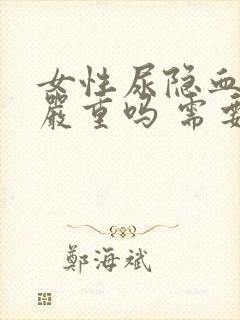 女性尿隐血
严重吗 需要
鄭海斌